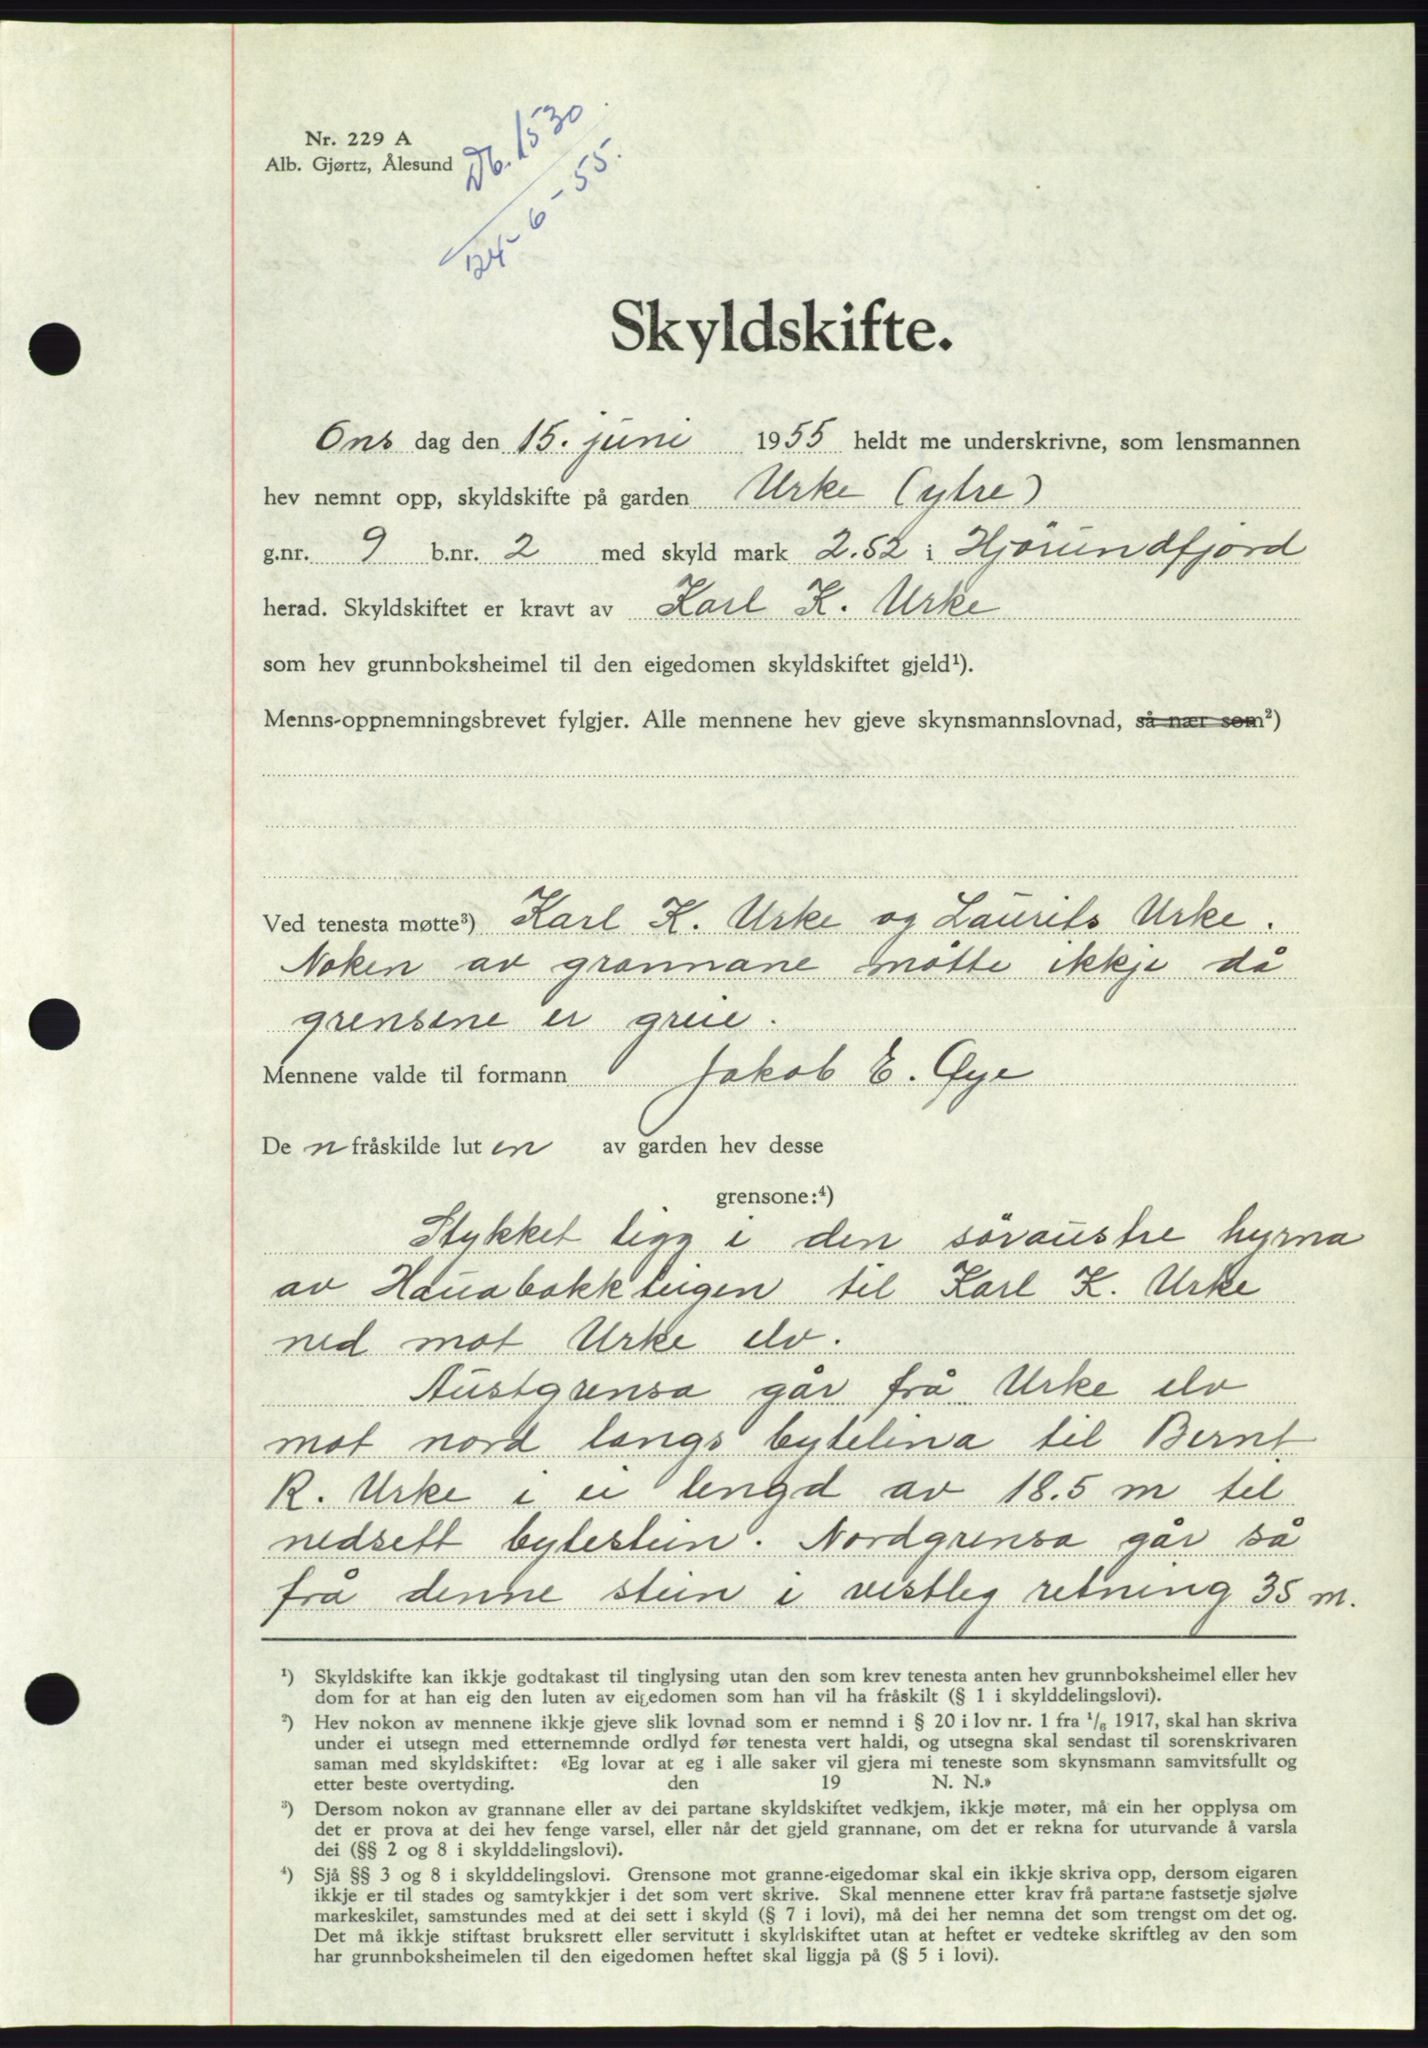 Nr. 229 A
Alb. Gjørtz, Ålesund
Db. 1530
24-6-55.
Skyldskifte.
Ons dag den 15. juni 1955 heldt me underskrivne, som lensmannen
hev nemnt opp, skyldskifte på garden Urke (ytre)
g.nr. 9 b.nr. 2 med skyld mark 2.52 i Hjörundfjord
herad. Skyldskiftet er kravt av Karl K. Urke
som hev grunnboksheimel til den eigedomen skyldskiftet gjeld¹).
Menns-oppnemningsbrevet fylgjer. Alle mennene hev gjeve skynsmannslovnad, så nær som²)
Ved tenesta møtte³) Karl K. Urke og Laurits Urke.
Noken av grannane møtte ikkje då
grensene er greie.
Mennene valde til formann Jakob E. Øye
De n fråskilde lut en av garden hev desse
grensone:⁴)
Stykket ligg i den söraustre hyrna
av Hauabakkteigen til Karl K. Urke
ned mot Urke elv.
Austgrensa går frå Urke elv
mot nord langs bytelina til Bernt
R. Urke i ei lengd av 18.5 m til
nedsett bytestein. Nordgrensa går så
frå denne stein i vestleg retning 35 m.
¹) Skyldskifte kan ikkje godtakast til tinglysing utan den som krev tenesta anten hev grunnboksheimel eller hev
dom for at han eig den luten av eigedomen som han vil ha fråskilt (§ 1 i skylddelingslovi).
²) Hev nokon av mennene ikkje gjeve slik lovnad som er nemnd i § 20 i lov nr. 1 fra 1/6 1917, skal han skriva
under ei utsegn med etternemnde ordlyd før tenesta vert haldi, og utsegna skal sendast til sorenskrivaren
saman med skyldskiftet: «Eg lovar at eg i alle saker vil gjera mi teneste som skynsmann samvitsfullt og
etter beste overtyding. den 19 N. N.»
³) Dersom nokon av grannane eller av dei partane skyldskiftet vedkjem, ikkje møter, må ein her opplysa om
det er prova at dei hev fenge varsel, eller når det gjeld grannane, om det er rekna for uturvande å varsla
dei (§§ 2 og 8 i skylddelingslovi).
⁴) Sjå §§ 3 og 8 i skylddelingslovi. Grensone mot granne-eigedomar skal ein ikkje skriva opp, dersom eigaren
ikkje er til stades og samtykkjer i det som vert skrive. Skal mennene etter krav frå partane fastsetje sjølve
markeskilet, samstundes med at dei sett i skyld (§ 7 i lovi), må dei her nemna det som trengst om det og.
Det må ikkje stiftast bruksrett eller servitutt i skyldskiftet utan at heftet er vedteke skriftleg av den som
har grunnboksheimelen til den eigedomen heftet skal liggja på (§ 5 i lovi).